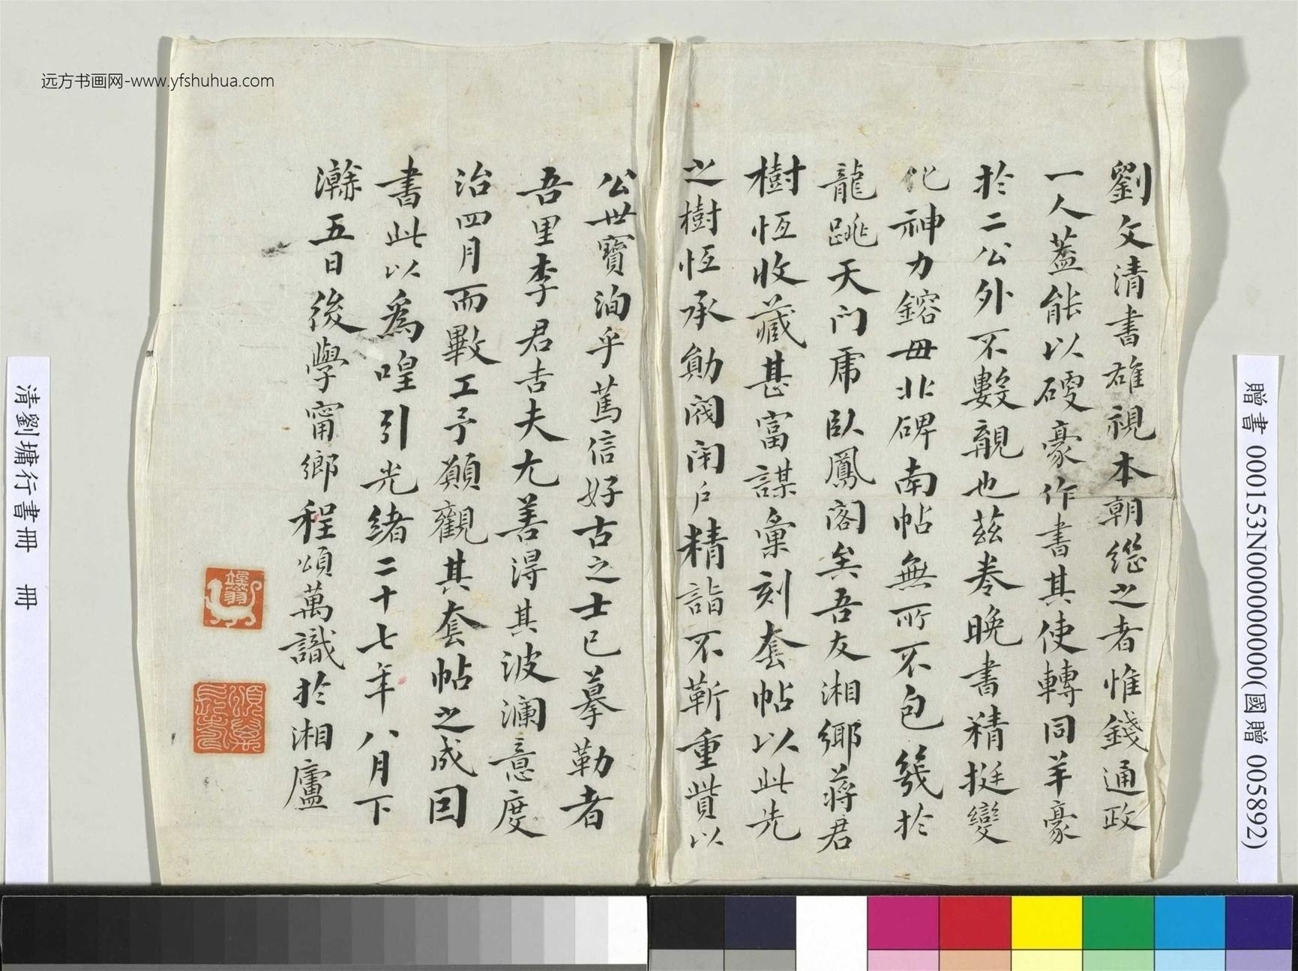 远方书画网-www.yfshuhua.com
劉文清書雄視本朝繼之者惟錢通政
一人蓋能以硬豪作書其使轉同羊豪
於二公外不數覯也茲卷晚書精挺變
化神力鎔毌北碑南帖無所不包幾於
龍跳天門虎臥鳳閣矣吾友湘鄉蔣君
樹恆收藏甚富謀彙刻套帖以此先
之樹恆承勛閥閉戶精詣不蘄重貲以
公世寶洵乎篤信好古之士已摹勒者
吾里李君吉夫尤善得其波瀾意度
治四月而斁工予願觀其套帖之成因
書此以為喤引光緒二十七年八月下
澣五日後學甯鄉程頌萬識於湘廬
清劉墉行書冊 冊
贈書 000153N000000000(國贈 005892)